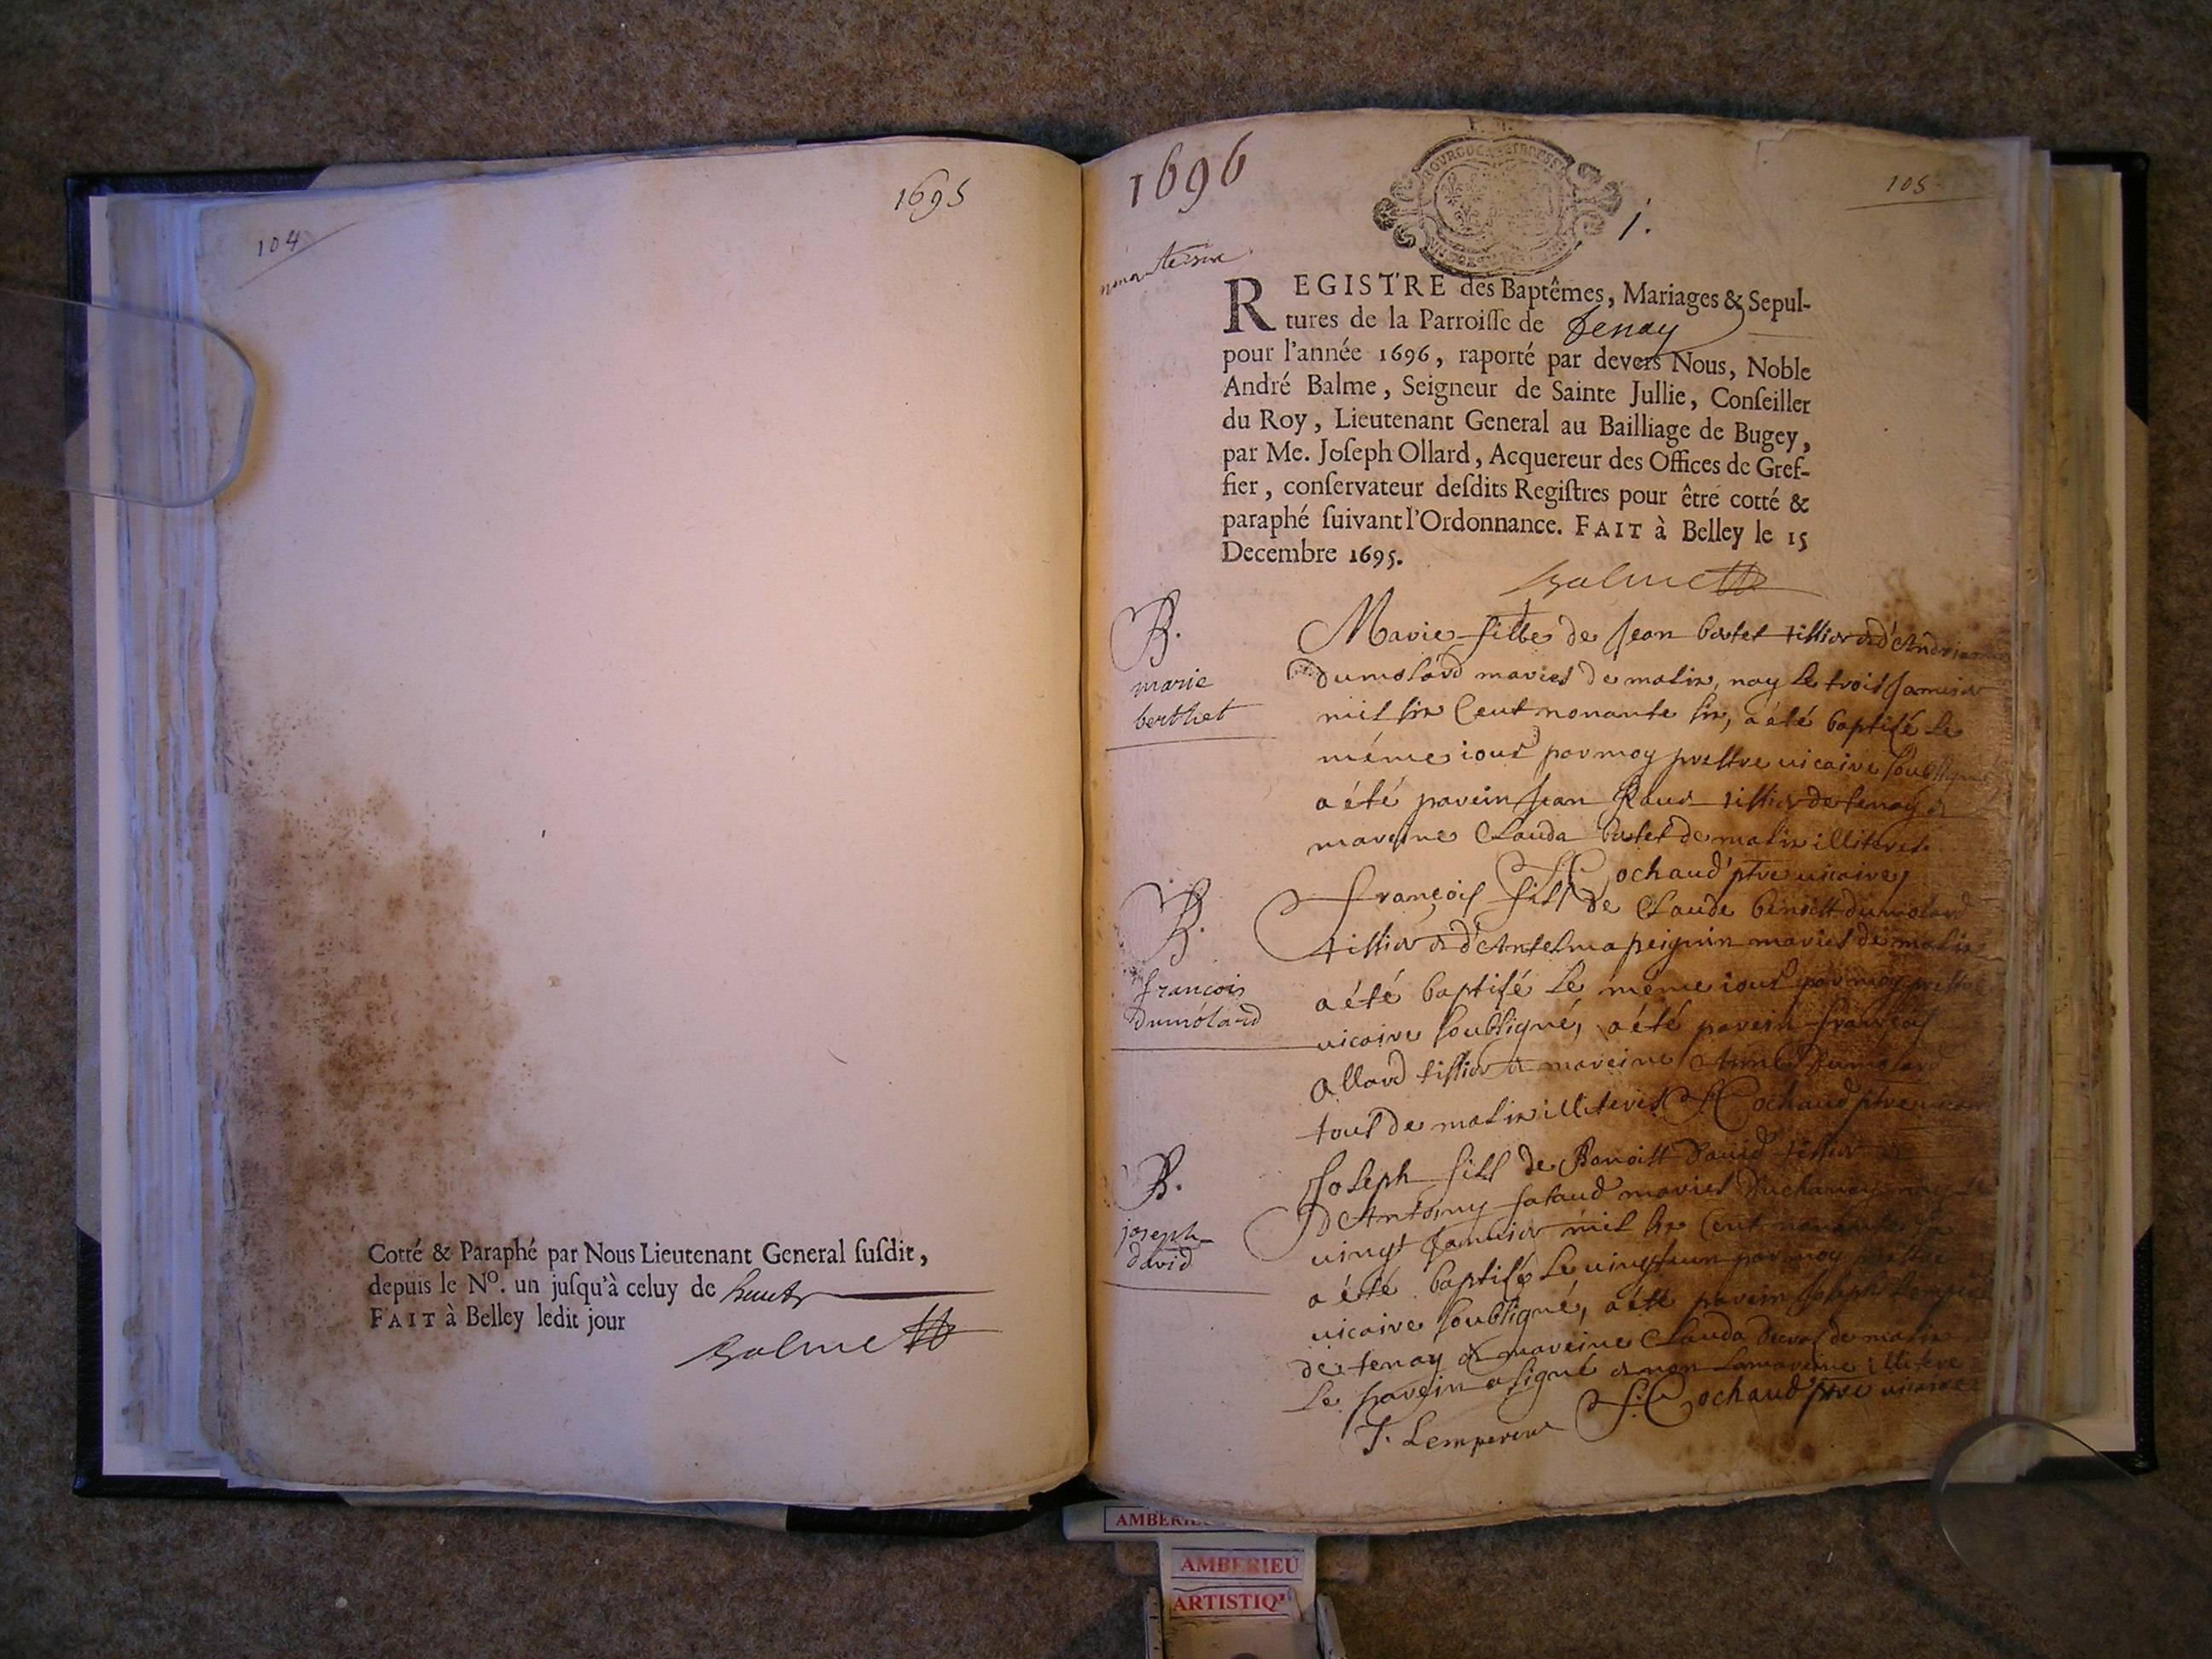 104
1695
Cotté & Paraphé par Nous Lieutenant General ſuſdit,
depuis le Nº. un juſqu'à celuy de huict
FAIT à Belley ledit jour
Balme
1696
105
BOURGOGNE ET BRESSE
1.
REGISTRE des Baptêmes, Mariages & Sepul-
tures de la Parroiſſe de Tenay
pour l'année 1696, raporté par devers Nous, Noble
André Balme, Seigneur de Sainte Jullie, Conſeiller
du Roy, Lieutenant General au Bailliage de Bugey,
par Me. Joſeph Ollard, Acquereur des Offices de Gref-
fier, conſervateur deſdits Regiſtres pour être cotté &
paraphé ſuivant l'Ordonnance. FAIT à Belley le 15
Decembre 1695.
Balme
B.
marie
berthet
Marie fille de Jean bertet tissier & d'Andrianne
dumolard mariés de malix, nay le trois Janvier
mil six Cent nonante six, a été baptisé le
méme iour par moy prestre uicaire soubsigné
a été parein Jean Raud tissier de tenay &
mareine Clauda bertet de malix illiteres
J Cochaud ptre uicaire
B.
francois
Dumolard
françois fils de Claude benoist dumolard
tissier & d'Anselma peignin mariés de malix
a été baptisé le méme iour par moy prestre
uicaire soubsigné, a été parein françois
allard tissier & mareine Anne Dumolard
tous de malix illiteres J Cochaud ptre uicaire
B.
joseph
david
Joseph fils de Benoist David tissier &
D'Antoiny mariés Duchanay nay le
uingt Januier mil six Cent nonante six
a été baptisé le uingtun par moy prestre
uicaire soubsigné, a été parein Joseph Lempereur
de tenay & mareine Clauda de malix
Le parein a signé & non la mareine illitere
J. Lempereur J. Cochaud ptre uicaire
AMBERIEU
ARTISTIQ